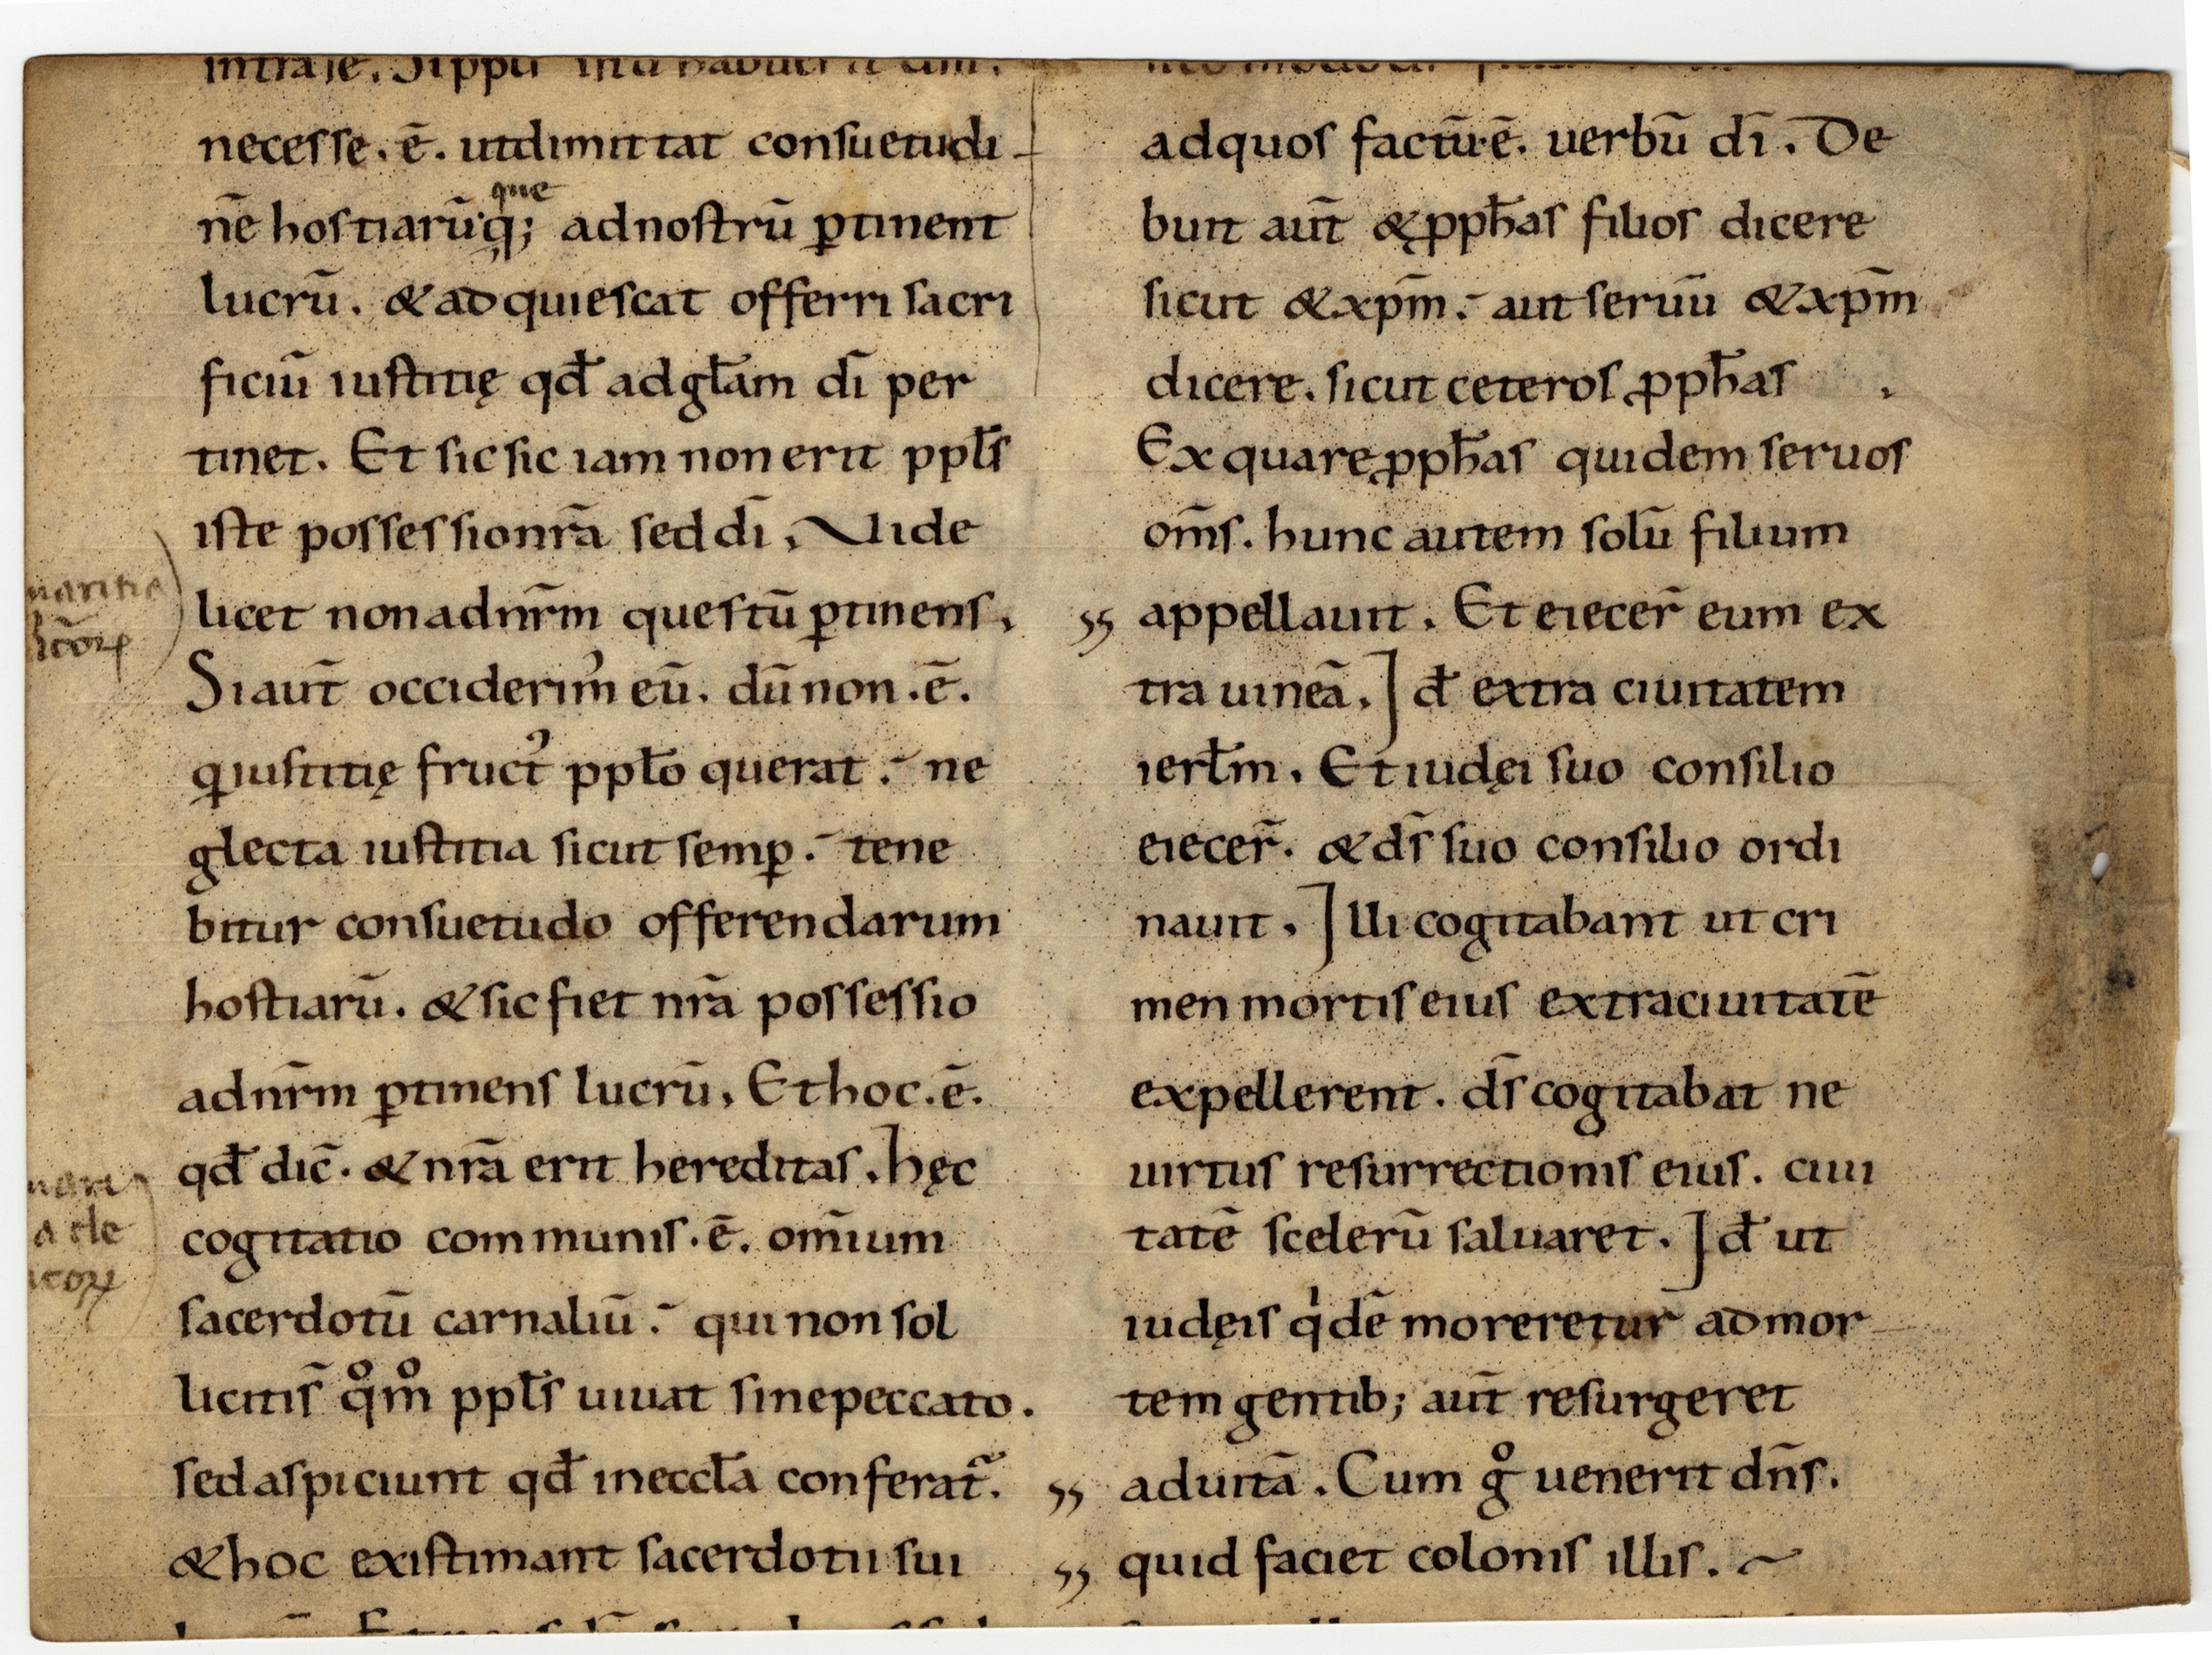 necesse. ē. ut dimittat consuetudi
nē hostiarū q;
que
ad nostrū ꝑtinent
lucrū. & adquiescat offerri sacri
ficiū iustitię qđ ad głam dī per
tinet. Et sic sic iam non erit ppłs
iste possessio nrā sed dī, Uide
licet non ad nr̄m questū ꝑtinens,
Si aut̄ occiderimꝰ eū. dū non .ē.
q iustitię fructꝰ ppło querat. ne
glecta iustitia sicut semꝑ. tene
bitur consuetudo offerendarum
hostiarū. & sic fiet nrā possessio
ad nr̄m ꝑtinens lucrū, Et hoc .ē.
qđ dic̄. & nrā erit hereditas. hęc
cogitatio communis .ē. om̄ium
sacerdotū carnaliū. qui non sol
licitis qͦmͦ ppłs uiuat sine peccato.
sed aspiciunt qđ in eccła conferat᷑.
& hoc existimant sacerdotii sui
ad quos factū ē. uerbū dī. De
bunt aut̄ & ꝓph̄as filios dicere
sicut & xp̄m. aut seruū & xp̄m
dicere. sicut ceteros ꝓph̄as
Ex qua re ꝓph̄as quidem seruos
om̄s. hunc autem solū filium
appellauit. Et eiecer̄ eum ex
tra uineā. Iđ extra ciuitatem
ierłm. Et iudęi suo consilio
eiecer̄. & ds̄ suo consilio ordi
nauit. Illi cogitabant ut cri
men mortis eius extra ciuitatē
expellerent. ds̄ cogitabat ne
uirtus resurrectionis eius. ciui
tatē scelerū saluaret. Iđ ut
iudęis qͥdē moreretur ad mor
tem gentib; aut̄ resurgeret
ad uitā. Cum gͦ uenerit dn̄s.
quid faciet colonis illis.